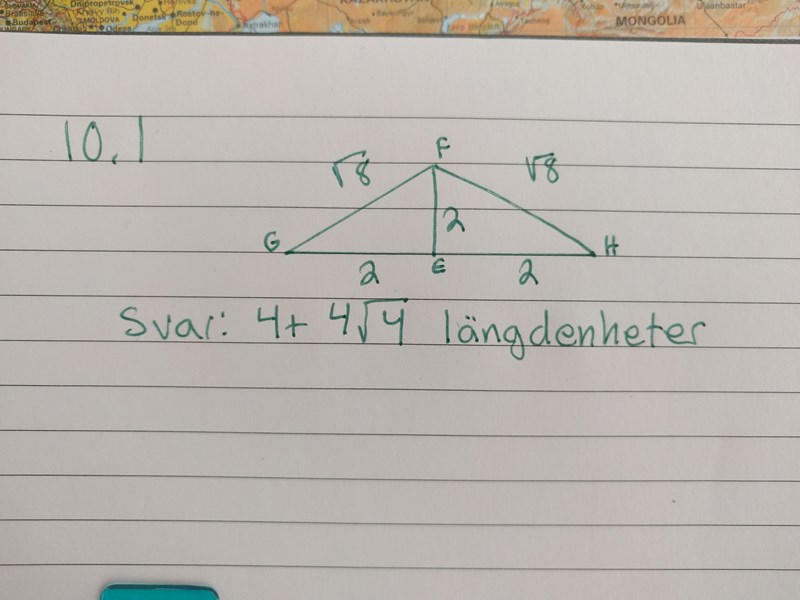 Dnipropetrovsk
MOLDOVA
Donetsk
Rostov-na-
Donu
Budapest
Odesa
Astrakhan
MONGOLIA
Ulaanbaatar
10.1
F
√8
√8
2
G
H
2
E
2
Svar: 4+ 4√4 längdenheter